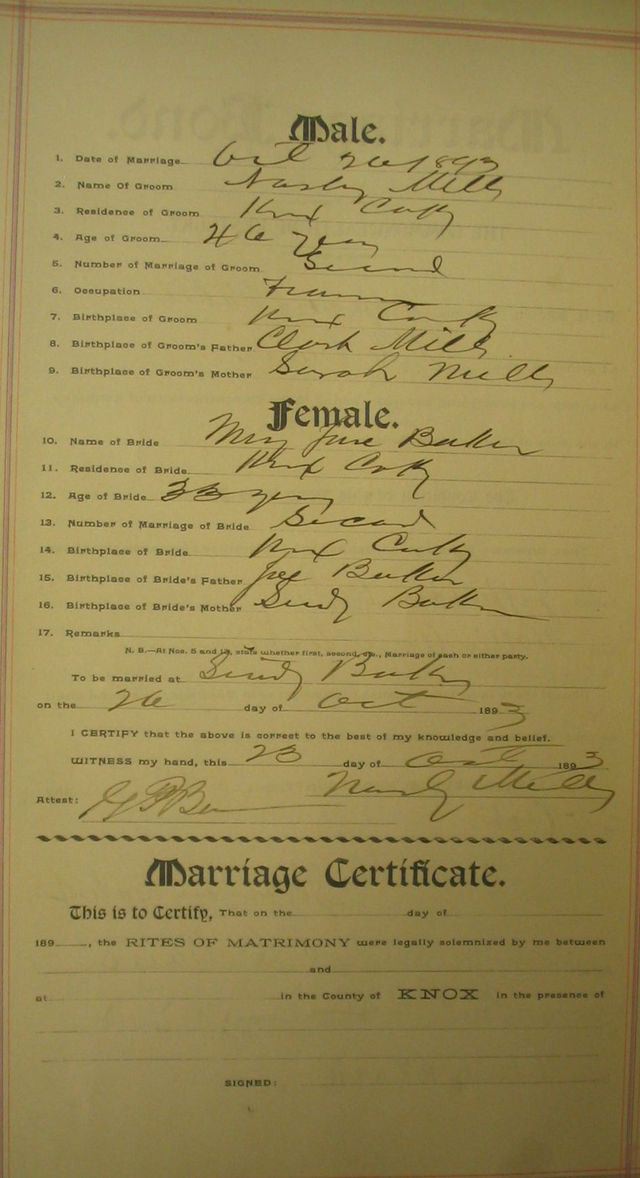 Male.
1. Date of Marriage Oct 26 1893
2. Name Of Groom Nasby Mills
3. Residence of Groom Knox Co Ky
4. Age of Groom 46 years
5. Number of Marriage of Groom Second
6. Occupation Farmer
7. Birthplace of Groom Knox Co Ky
8. Birthplace of Groom's Father Clark Mills
9. Birthplace of Groom's Mother Sarah Mills
Female.
10. Name of Bride Jane Baker
11. Residence of Bride Knox Co Ky
12. Age of Bride 33 years
13. Number of Marriage of Bride Second
14. Birthplace of Bride Knox Co Ky
15. Birthplace of Bride's Father Joe Baker
16. Birthplace of Bride's Mother Sindy Baker
17. Remarks
N. B.—At Nos. 5 and 13, state whether first, second, etc., Marriage of each or either party.
To be married at Sindy Baker
on the 26 day of Oct 1893
I CERTIFY that the above is correct to the best of my knowledge and belief.
WITNESS my hand, this 23 day of Oct 1893
Nasby Mills
Attest:
Marriage Certificate.
This is to Certify, That on the day of
189 , the RITES OF MATRIMONY were legally solemnized by me between
and
at in the County of KNOX in the presence of
SIGNED: